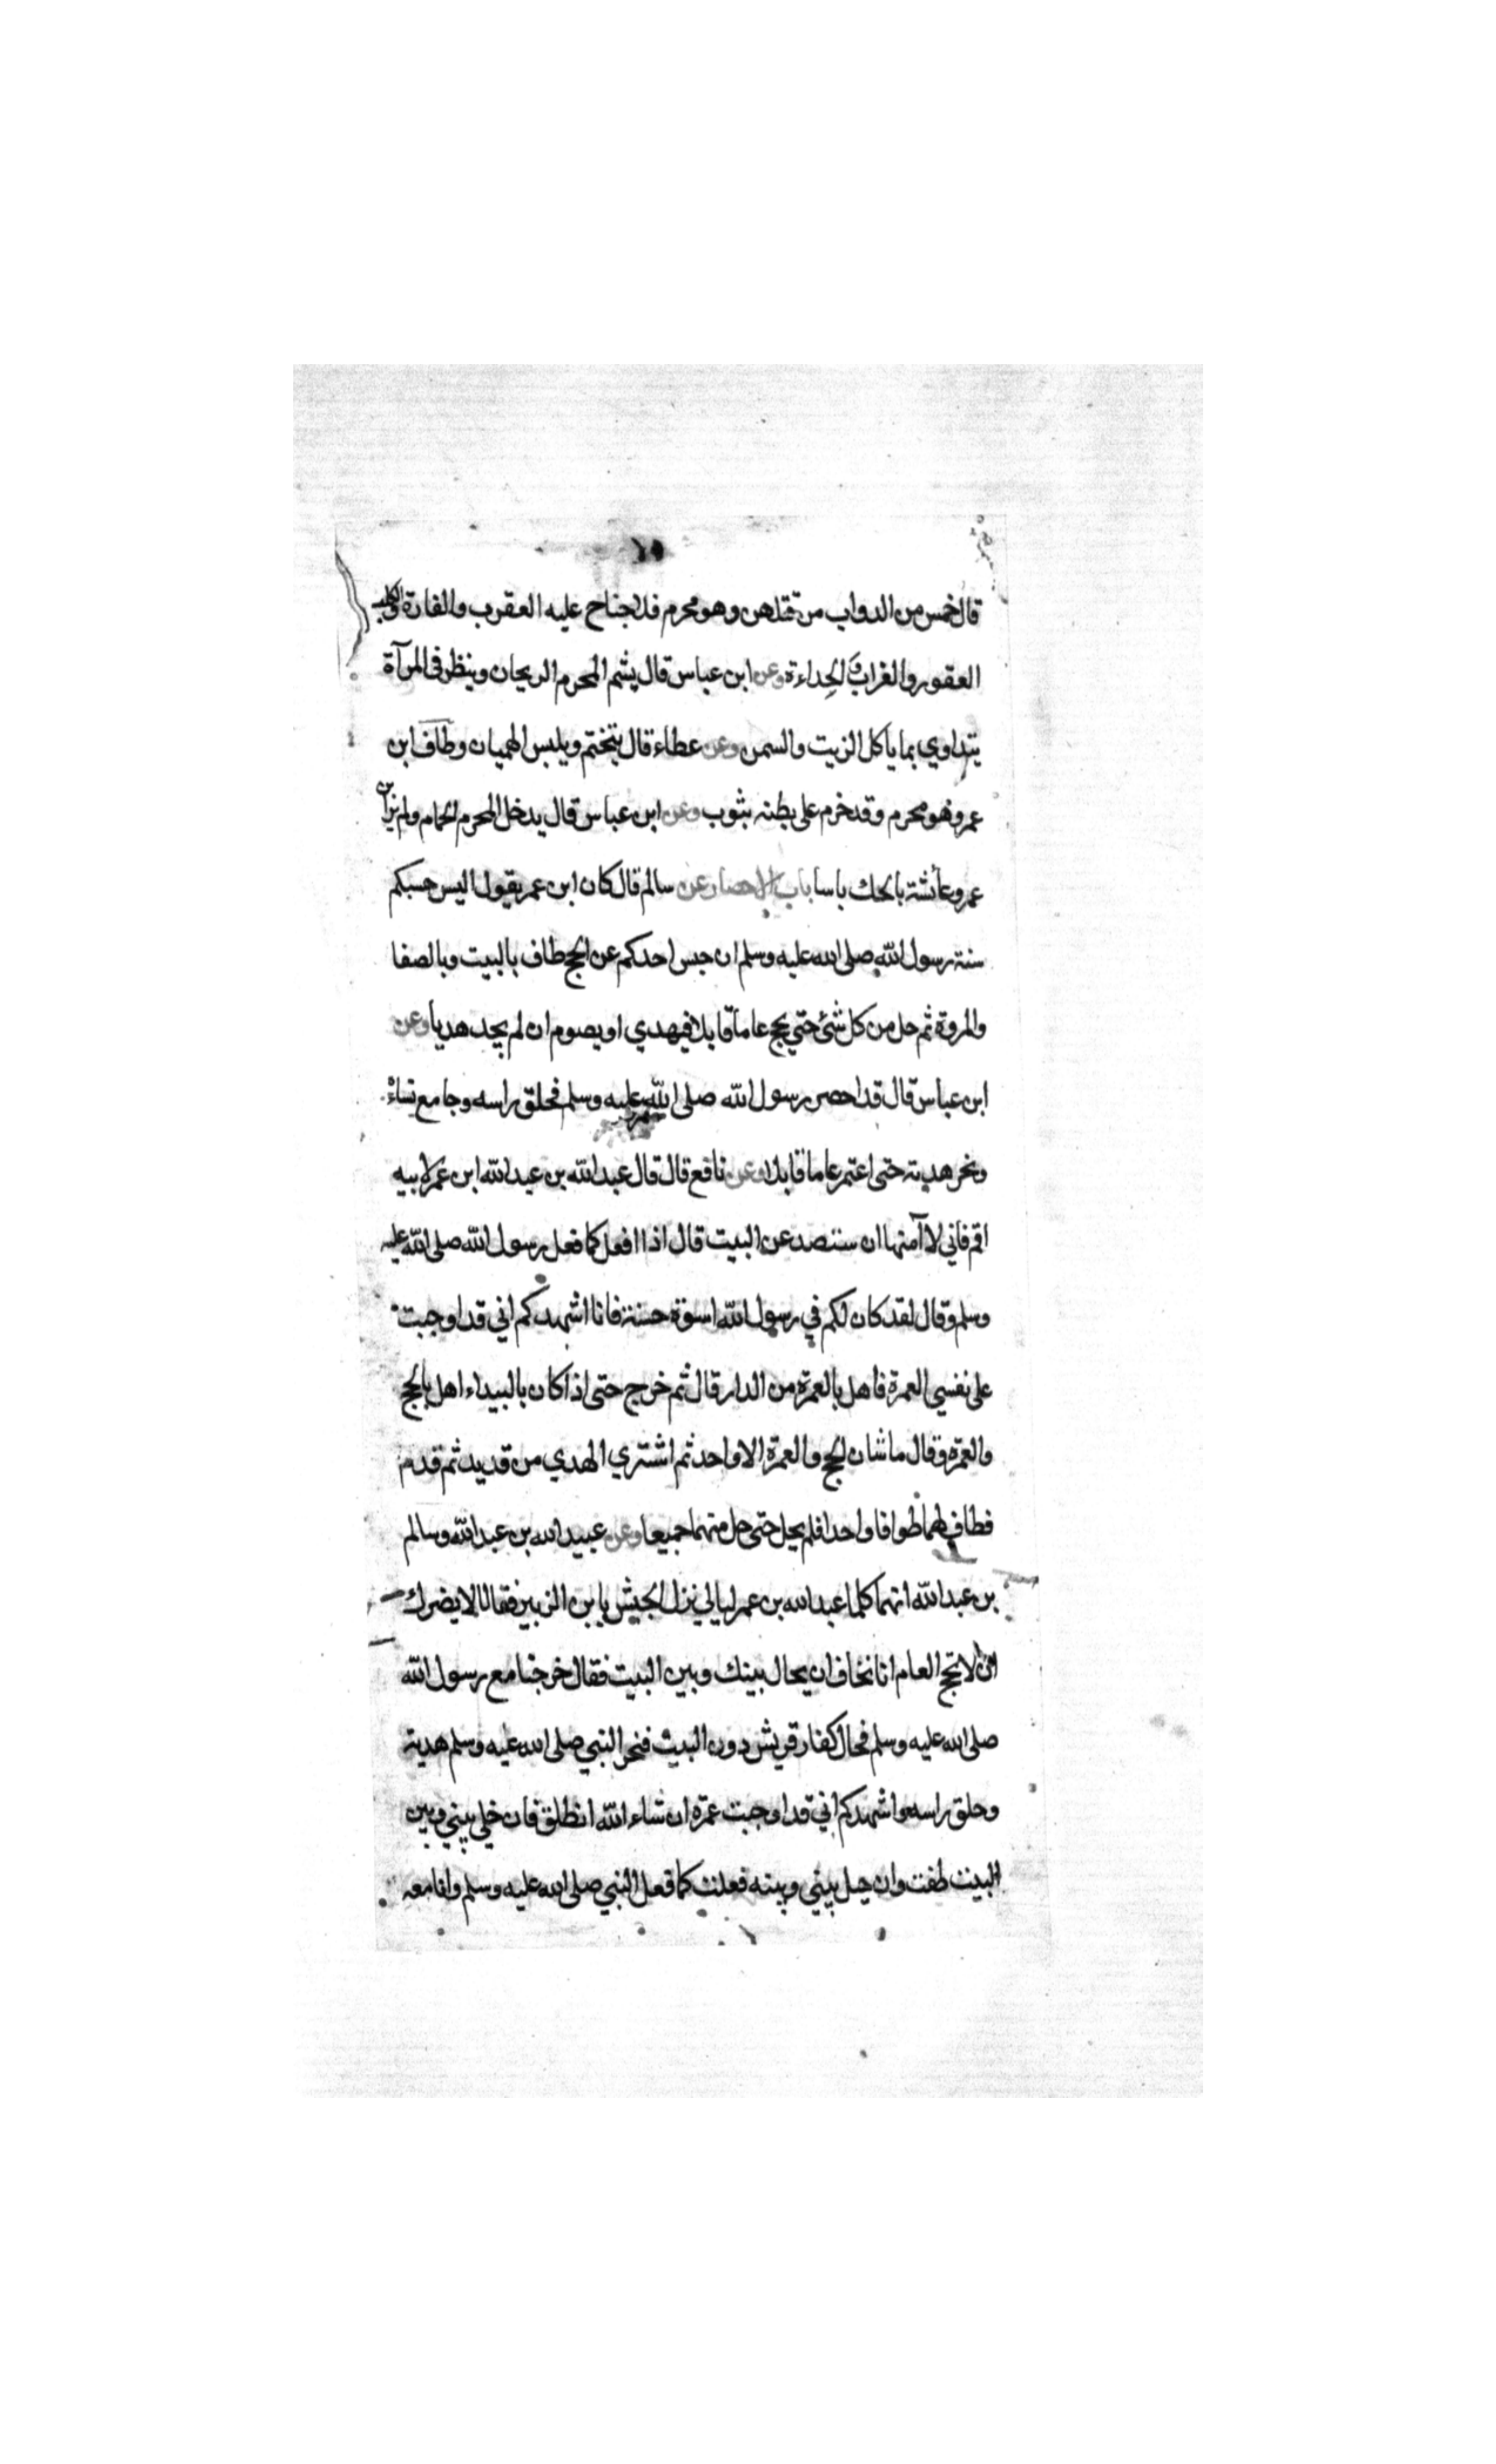 قال خمس من الدواب من قتلهن وهو محرم فلا جناح عليه العقرب والفارة والكلب
العقور والغراب والحداءة وعن ابن عباس قال يشم المحرم الريحان وينظر فى المرآة
يتداوي بما ياكل الزيت والسمن وعن عطاء قال يتختم ويلبس الهميان وطاف ابن
عمر وهو محرم وقد خرم على بطنه بثوب وعن ابن عباس قال يدخل المحرم الحمام ولم ير ابن
عمر وعائشة بالحك باسا باب الاحصار عن سالم قال كان ابن عمر يقول اليس حسبكم
سنة رسول الله صلى الله عليه وسلم ان حبس احدكم عن الحج طاف بالبيت وبالصفا
والمروة ثم حل من كل شئ حتي يحج عاما قابلا فيهدي او يصوم ان لم يجد هديا وعن
ابن عباس قال قد احصر رسول الله صلى الله عليه وسلم فحلق راسه وجامع نساءه
ونحر هديه حتى اعتمر عاما قابلا وعن نافع قال قال عبد الله بن عبد الله ابن عمر لابيه
اقم فاني لا آمنها ان ستصد عن البيت قال اذا افعل كما فعل رسول الله صلى الله عليه
وسلم وقال لقد كان لكم في رسول الله اسوة حسنة فانا اشهدكم اني قد اوجبت
على نفسي العمرة فاهل بالعمرة من الدار قال ثم خرج حتى اذا كان بالبيداء اهل بالحج
والعمره وقال ما شان الحج والعمرة الا واحد ثم اشتري الهدي من قديد ثم قدم
فطاف لهما طوافا واحدا فلم يحل حتى حل منهما جميعا وعن عبيد الله بن عبد الله وسالم
بن عبد الله انهما كلما عبد الله بن عمر ليالي نزل الجيش بابن الزبير فقالا لا يضرك
ان لا تحج العام انا نخاف ان يحال بينك وبين البيت فقال خرجنا مع رسول الله
صلى الله عليه وسلم فحال كفار قريش دون البيت فنحر النبي صلى الله عليه وسلم هديه
وحلق راسه واشهدكم اني قد اوجبت عمره ان شاء الله انطلق فان خلي بيني وبين
البيت طفت وان حيل بيني وبينه فعلت كما فعل النبي صلى الله عليه وسلم وانا معه